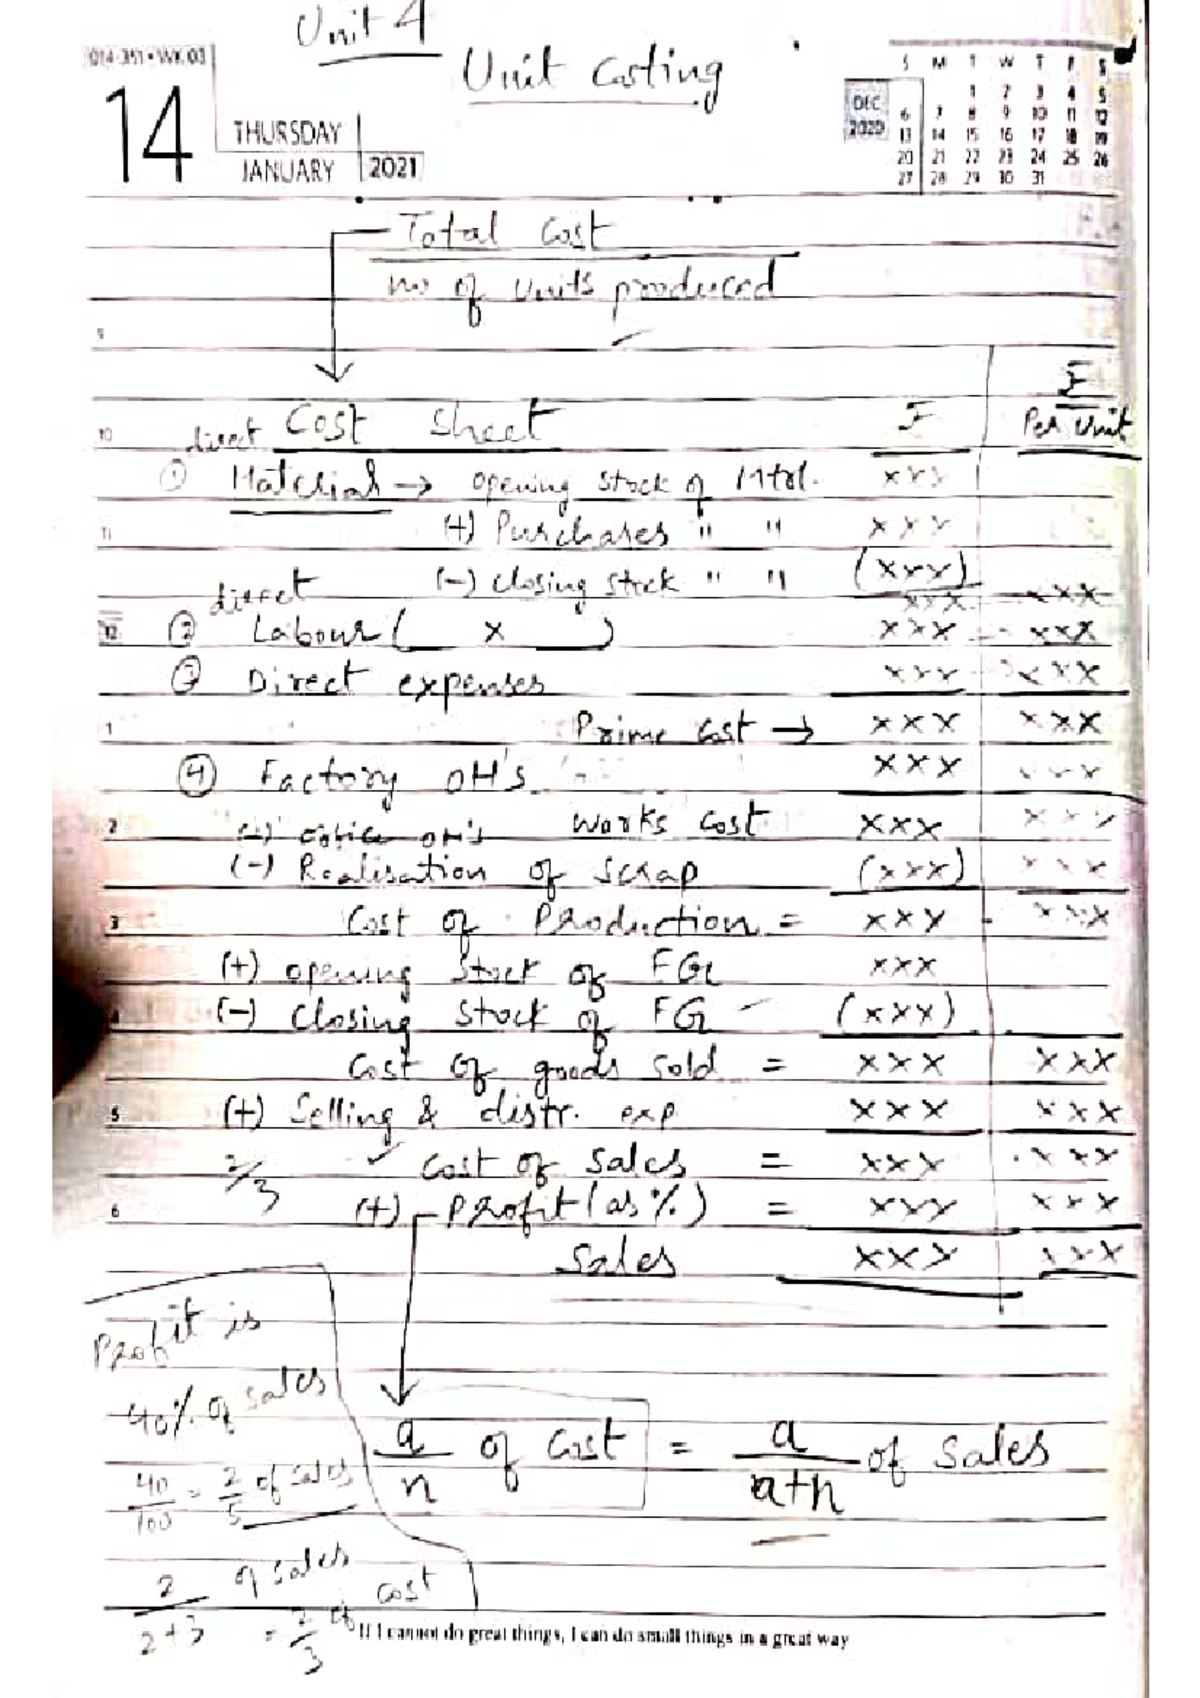 Unit 4
Unit Costing
014-351 • WK 03
14 THURSDAY
JANUARY 2021
DEC 2020
S M T W T F S
1 2 3 4 5
6 7 8 9 10 11 12
13 14 15 16 17 18 19
20 21 22 23 24 25 26
27 28 29 30 31
Total Cost
no of units produced
9
₹ ₹ Per Unit
10 direct Cost Sheet
① Material → opening stock of Mtrl. xxx
11 (+) Purchases " " xxx
(-) closing stock " " (xxx)
direct xxx xxx
12 ② Labour ( x ) xxx xxx
③ Direct expenses xxx xxx
1 Prime Cost → xxx xxx
④ Factory OH's xxx xxx
2 (+) office OH's Works Cost xxx xxx
(-) Realisation of scrap (xxx) xxx
3 Cost of Production = xxx - xxx
(+) opening Stock of FG xxx
4 (-) Closing Stock of FG - (xxx)
Cost of goods sold = xxx xxx
5 (+) Selling & distr. exp xxx xxx
2/3 ✓ Cost of Sales = xxx xxx
6 (+) Profit (as %) = xxx xxx
Sales xxx xxx
Profit is
40% of sales
40/100 = 2/5 of sales
a/n of Cost = a/a+n of Sales
2/2+3 of sales
= 2/3 of cost
If I cannot do great things, I can do small things in a great way